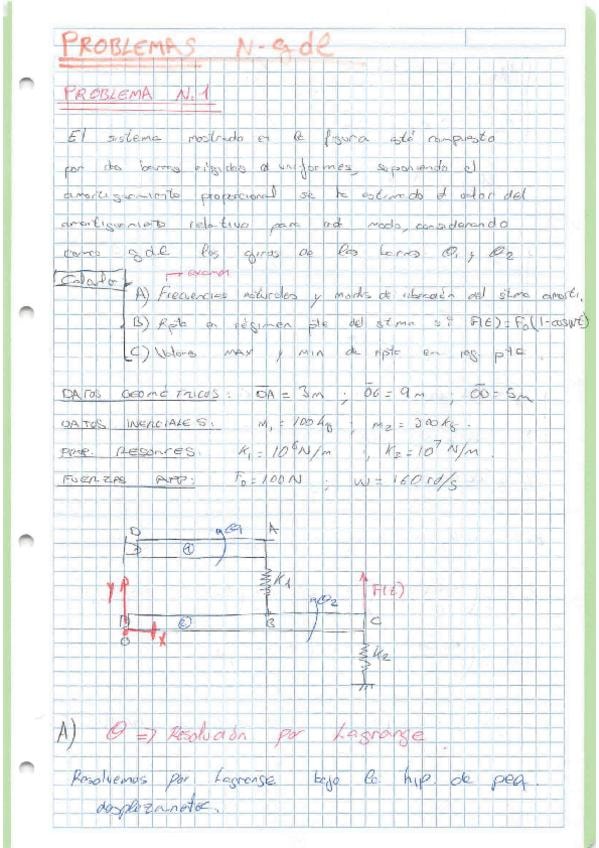 PROBLEMAS N-gdl
PROBLEMA N.1
El sistema mostrado en la figura está compuesto
por dos barras rígidas uniformes, suponiendo el
amortiguamiento proporcional se ha estimado el valor del
amortiguamiento relativo para cada modo, considerando
como gdl los giros de las barras θ1 y θ2
→ examen
Calcular
A) Frecuencias naturales y modos de vibración del stma amorti.
B) Rpta en régimen pte del stma si F(t) = F0(1-cosωt)
C) Valores MAX y MIN de rpta en reg. pte.
DATOS GEOMÉTRICOS: OA = 3m ;
DATOS INERCIALES: m1 = 100kg ; m2 = 300kg.
PROP. RESORTES: K1 = 10⁶N/m ; K2 = 10⁷ N/m.
FUERZAS APP: F0 = 100N ; W = 160rd/s
D θ1 A
1
K1
Y θ2 F(t)
2 B C
O X
K2
A) θ => Resolución por Lagrange.
Resolvemos por Lagrange bajo la hip. de peq.
desplazamientos.